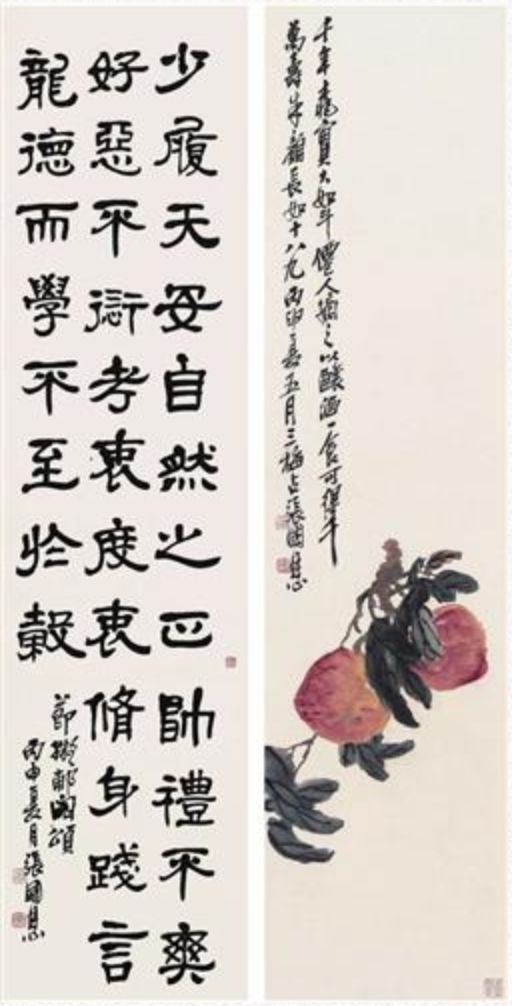 千年桃實大如斗僊人摘之以釀酒一食可得千
萬壽朱顏長如十八九丙申夏五月三張國
少履天姿自然之正帥禮不爽
好惡不衍考衷度衷脩身踐言
龍德而學不至於穀
節擬郙閣頌
丙申夏月張國